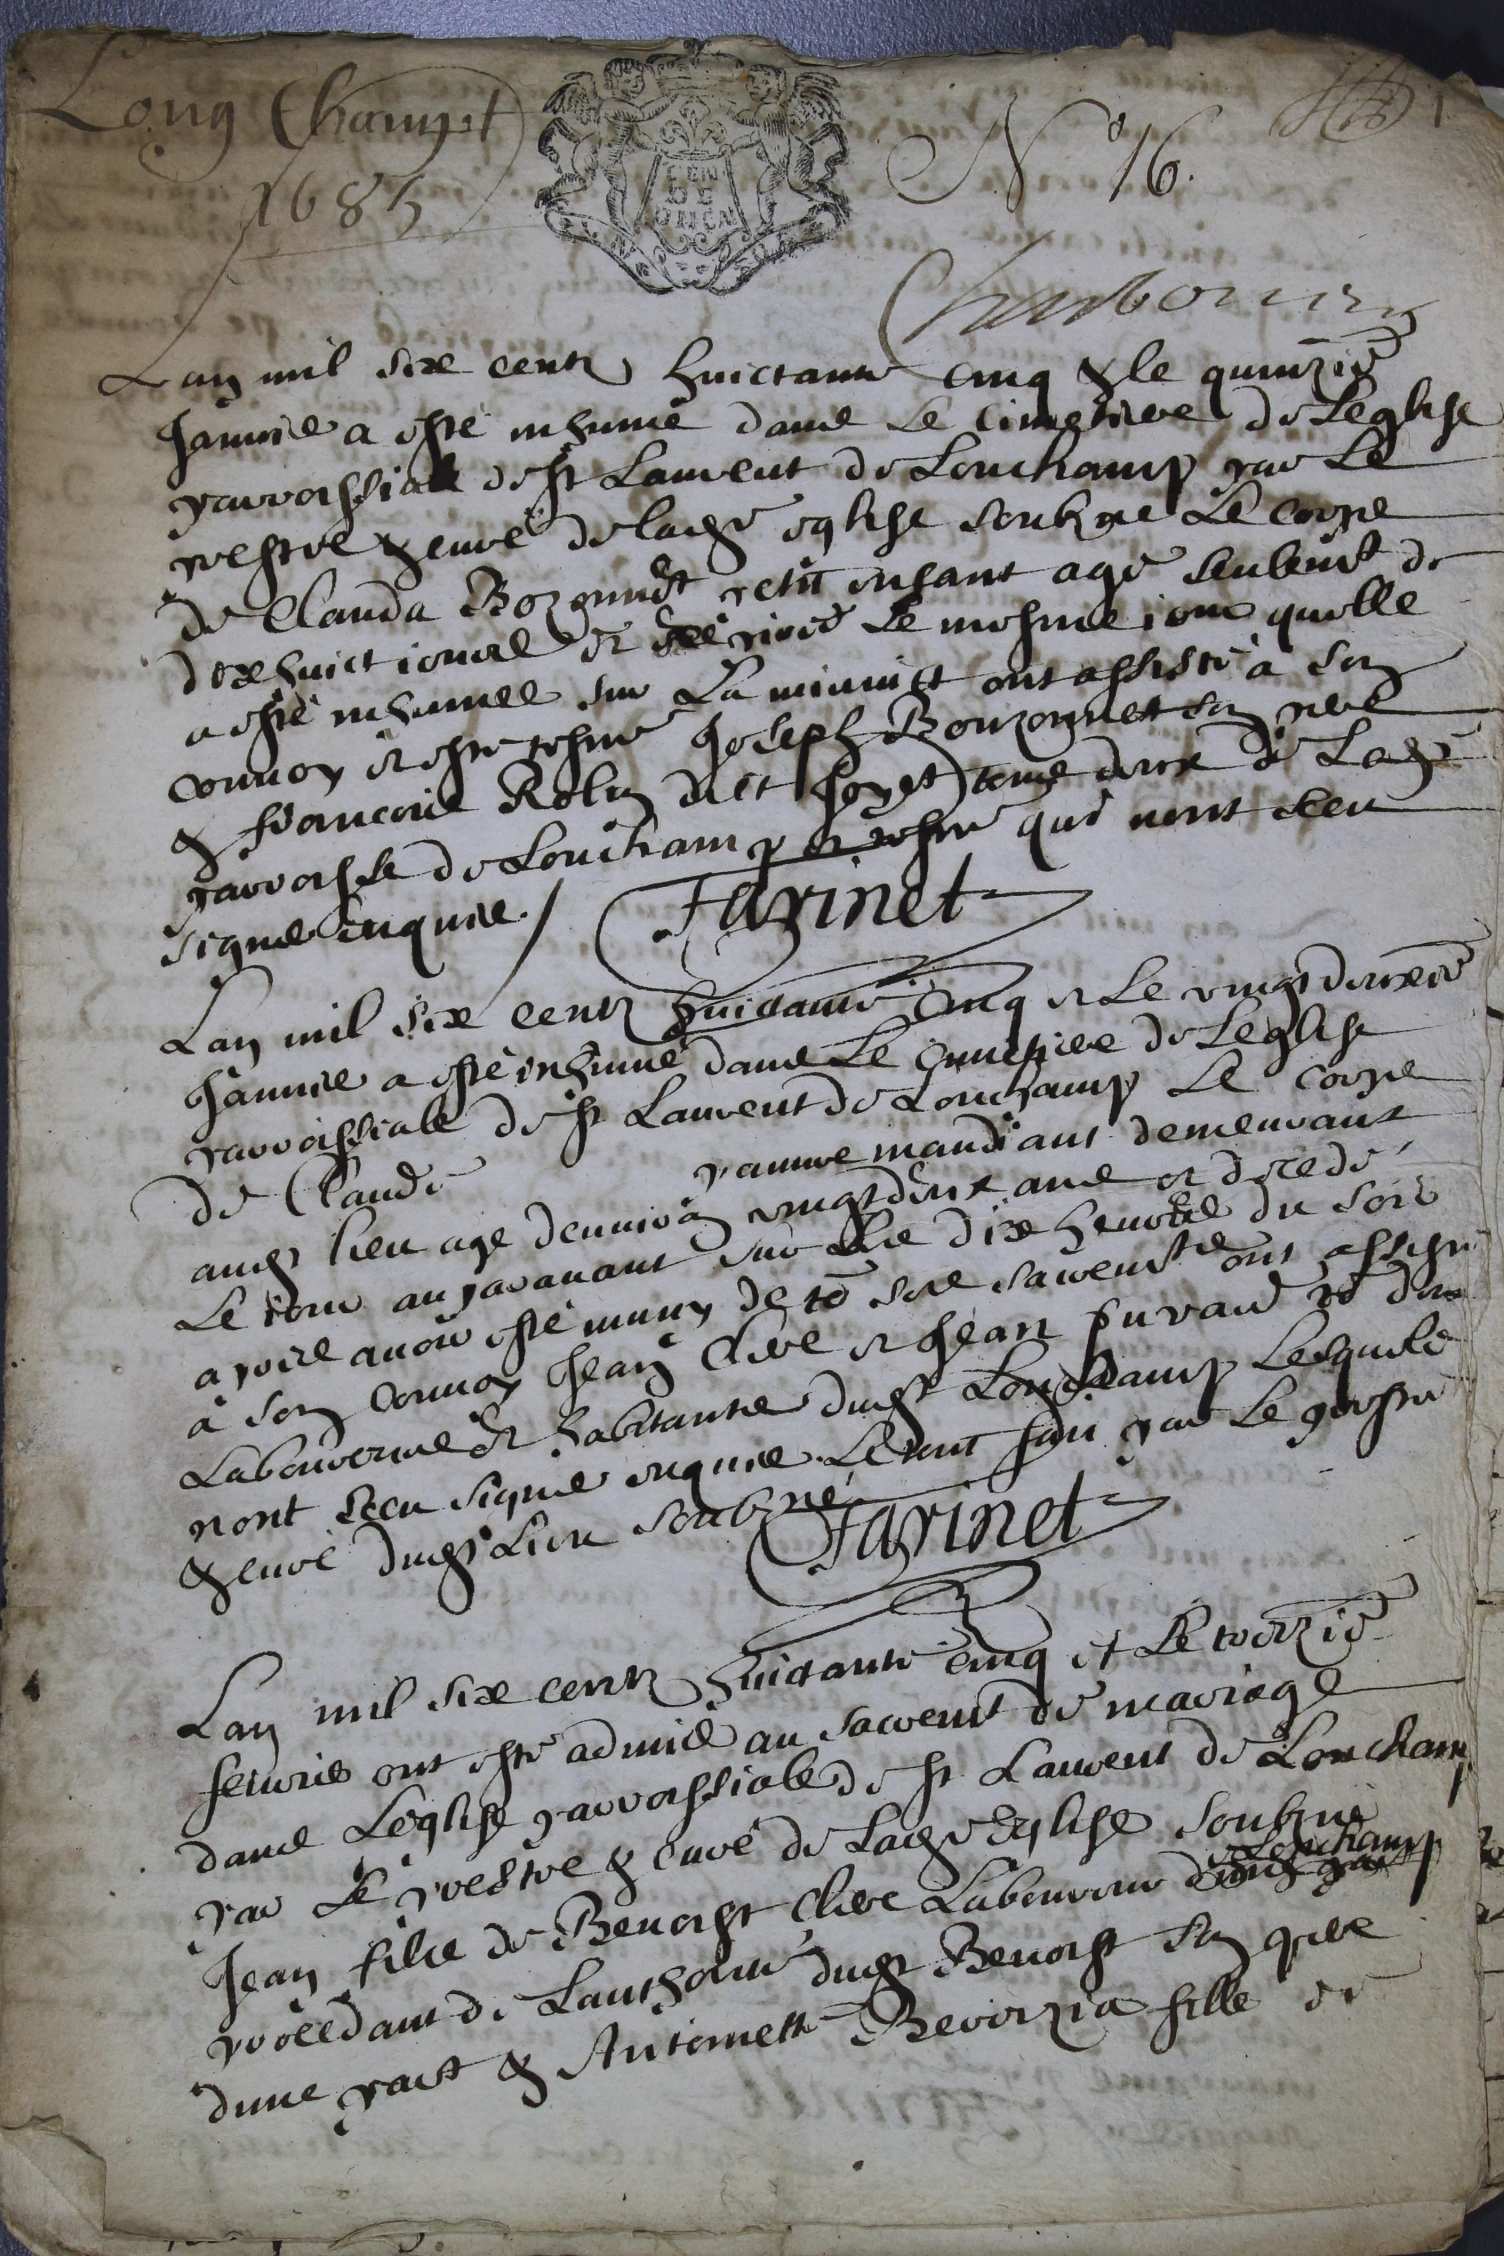 Long Champt
1685
N° 16.
Lan mil six centz huictante cinq & le quinziē
Janvier a esté inhumé dans le cimetiere de Leglise
parroissialle de St Laurent de Lonchamp par Le
prestre & curé de ladte eglise soubzne Le corps
de Clauda Bozonnet petit enfant agé seulemt de
dixhuict jours et le mesme jour quelle
a esté inhumée sur La minuict ont assisté à son
convoy Joseph Bouzonnet son pere
& francois Robin dict tous deux de Ladte
parroisse de Lonchamp qui nont sceu
signer enquis./ Farinet
Lan mil six centz huictante cinq et Le vingt deuxiē
Janvier a esté inhumé dans Le cimetiere de Leglise
parroissialle de St Laurent de Lonchamp Le corps
de Claude pauvre mandiant demeurant
audt lieu age denviron vingt deux ans et decedé
Le jour auparavant sur Les dix heures du soir
apres avoir esté muny de to ses sacremts ont assisté
à son convoy Jean Clere et Jean
Laboureurs & habitants dudt Lonchamp Lesquels
nont sceu signer enquis. Le tout faict par Le prestre
& curé dudt Lieu soubzné Farinet
Lan mil six centz huictante cinq et Le treiziē
fevrier ont esté admis au sacremt de mariage
dans Leglise parroissialle de St Laurent de Lonchamp
par Le prestre & curé de Ladte Eglise soubzne
Jean filz de Benoist Clere Laboureur Lonchamp
procedant de Lauthorité dudt Benoist son pere
dune part & Antoinette fille de